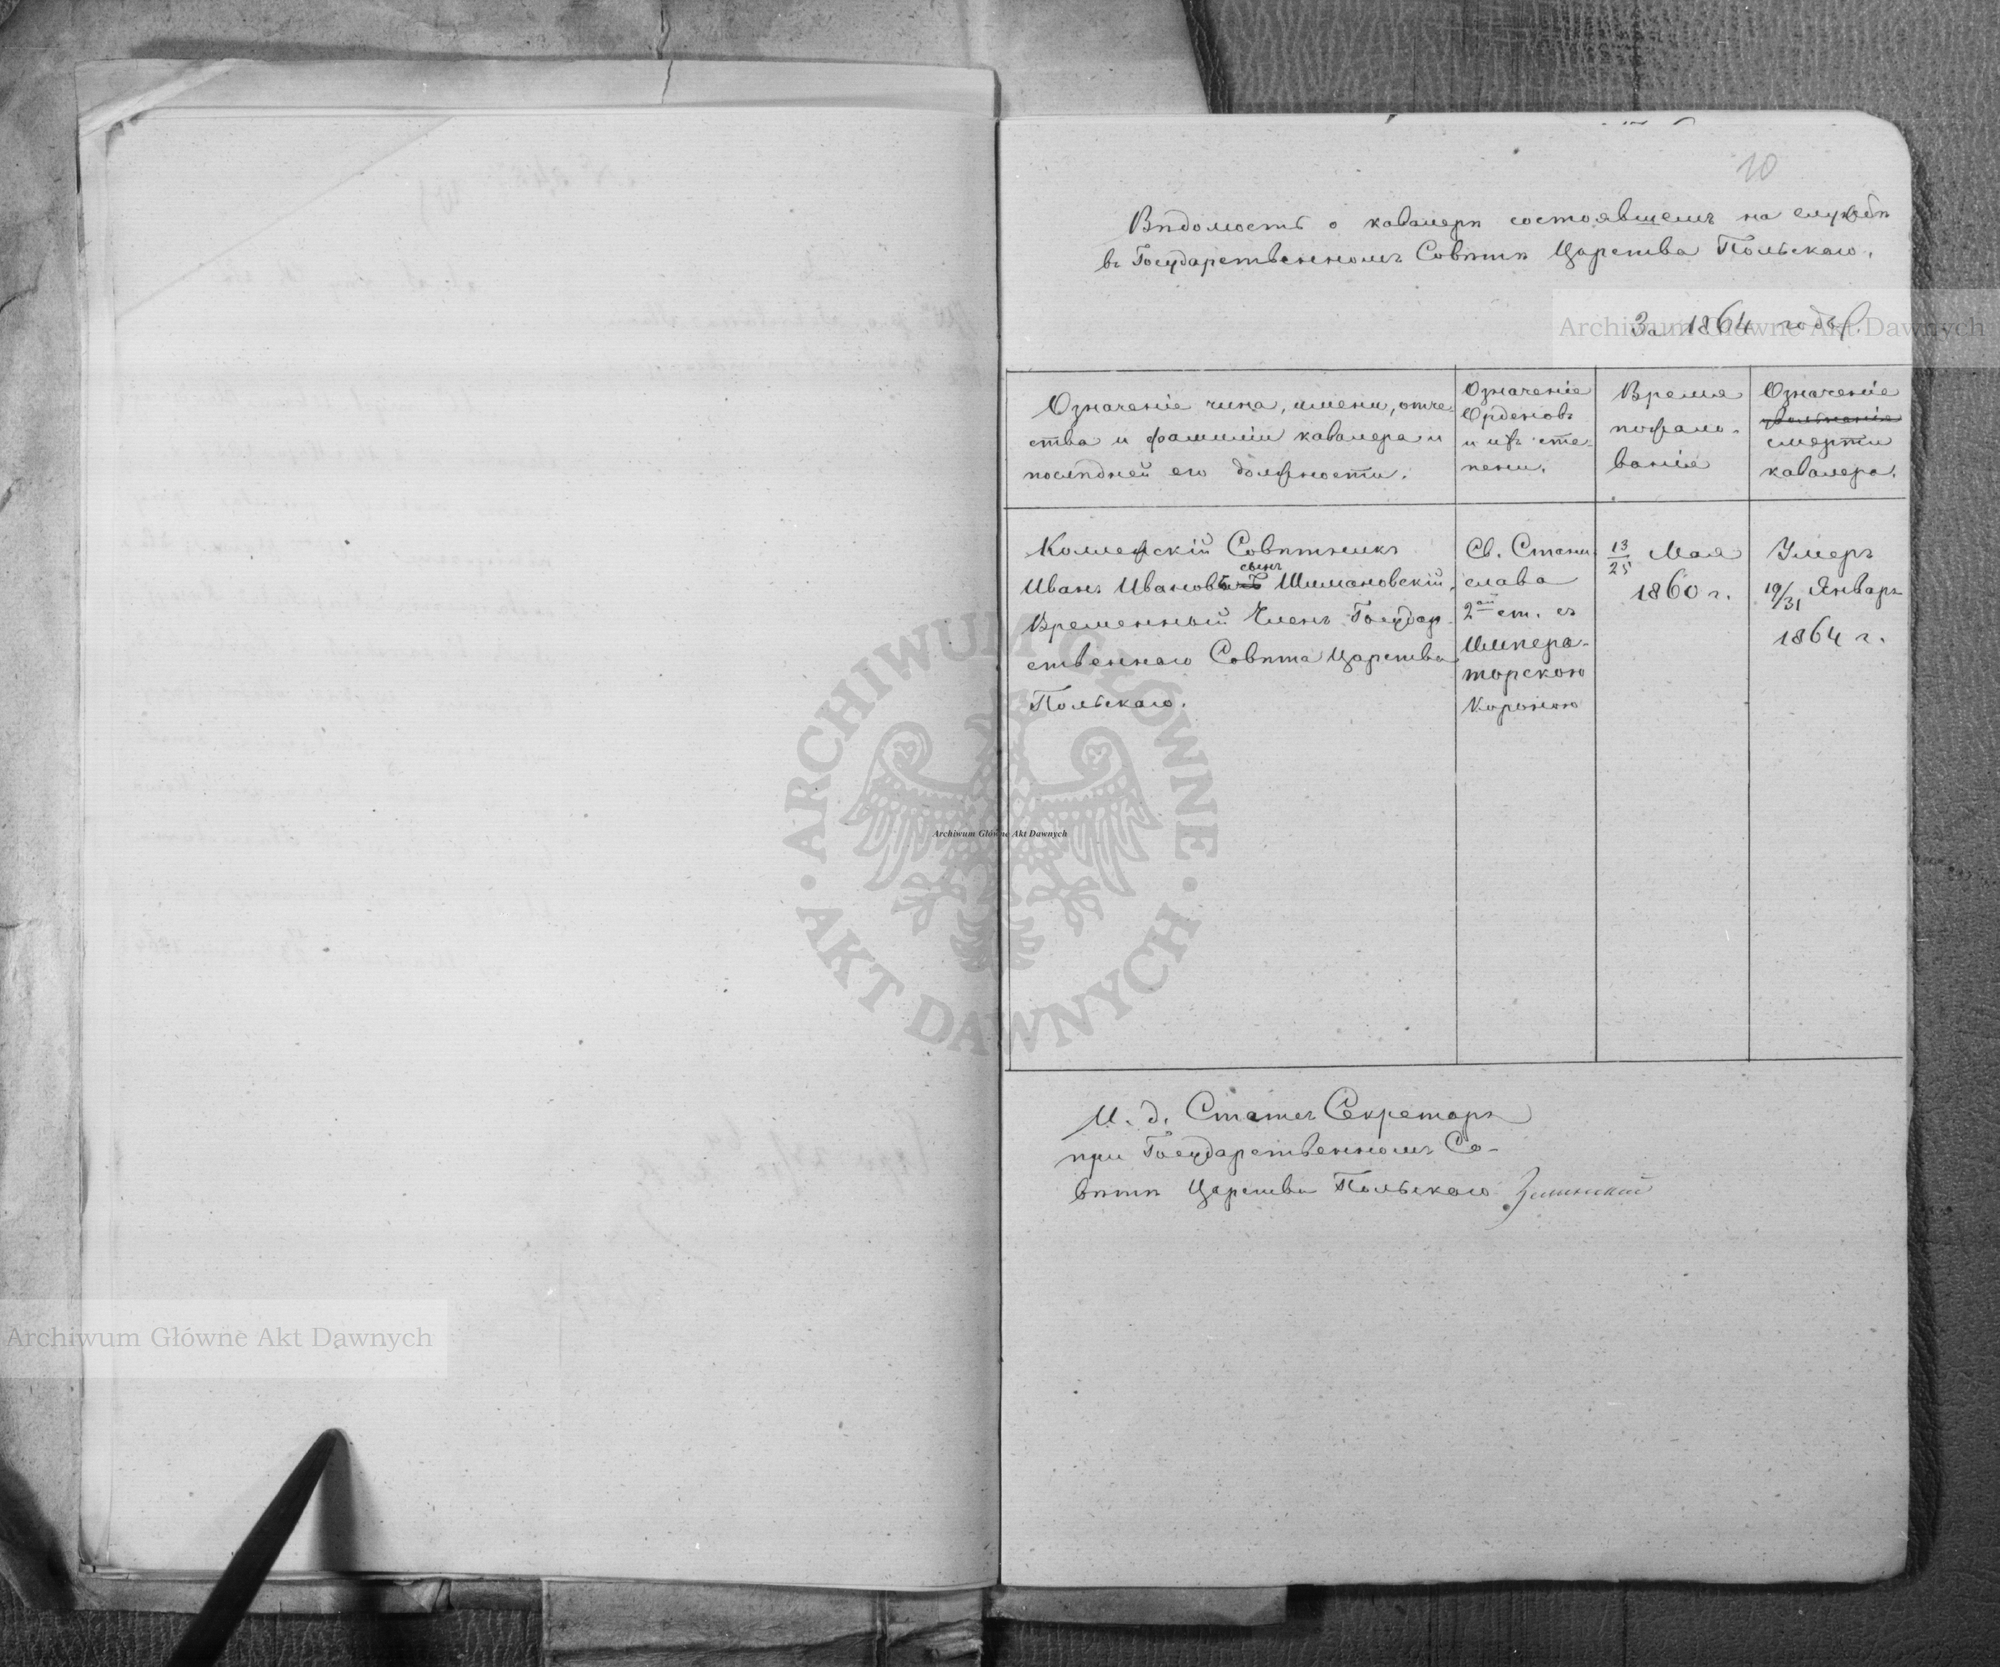 10
Вѣдомость о кавалерѣ состоявшемъ на службѣ
въ Государственномъ Совѣтѣ Царства Польскаго.
За 1864 годъ.
Означеніе чина, имени, отче-
ства и фамиліи кавалера и
послѣдней его должности.
Означеніе
Орденовъ
и ихъ сте-
пени.
Время
пожало-
ванія
Означеніе
увольненія
смерти
кавалера.
Коллежскій Совѣтникъ
сынъ
Иванъ Ивановъ Шимановскій,
Временный Членъ Государ-
ственнаго Совѣта Царства
Польскаго.
Св. Стани-
слава
2ой ст. съ
Импера-
торскою
Короною
13/25 Мая
1860 г.
Умеръ
19/31 Январь
1864 г.
И. д. Статсъ Секретарь
при Государственномъ Со-
вѣтѣ Царства Польскаго
Archiwum Główne Akt Dawnych
ARCHIWUM GŁÓWNE AKT DAWNYCH
Archiwum Główne Akt Dawnych
Archiwum Główne Akt Dawnych